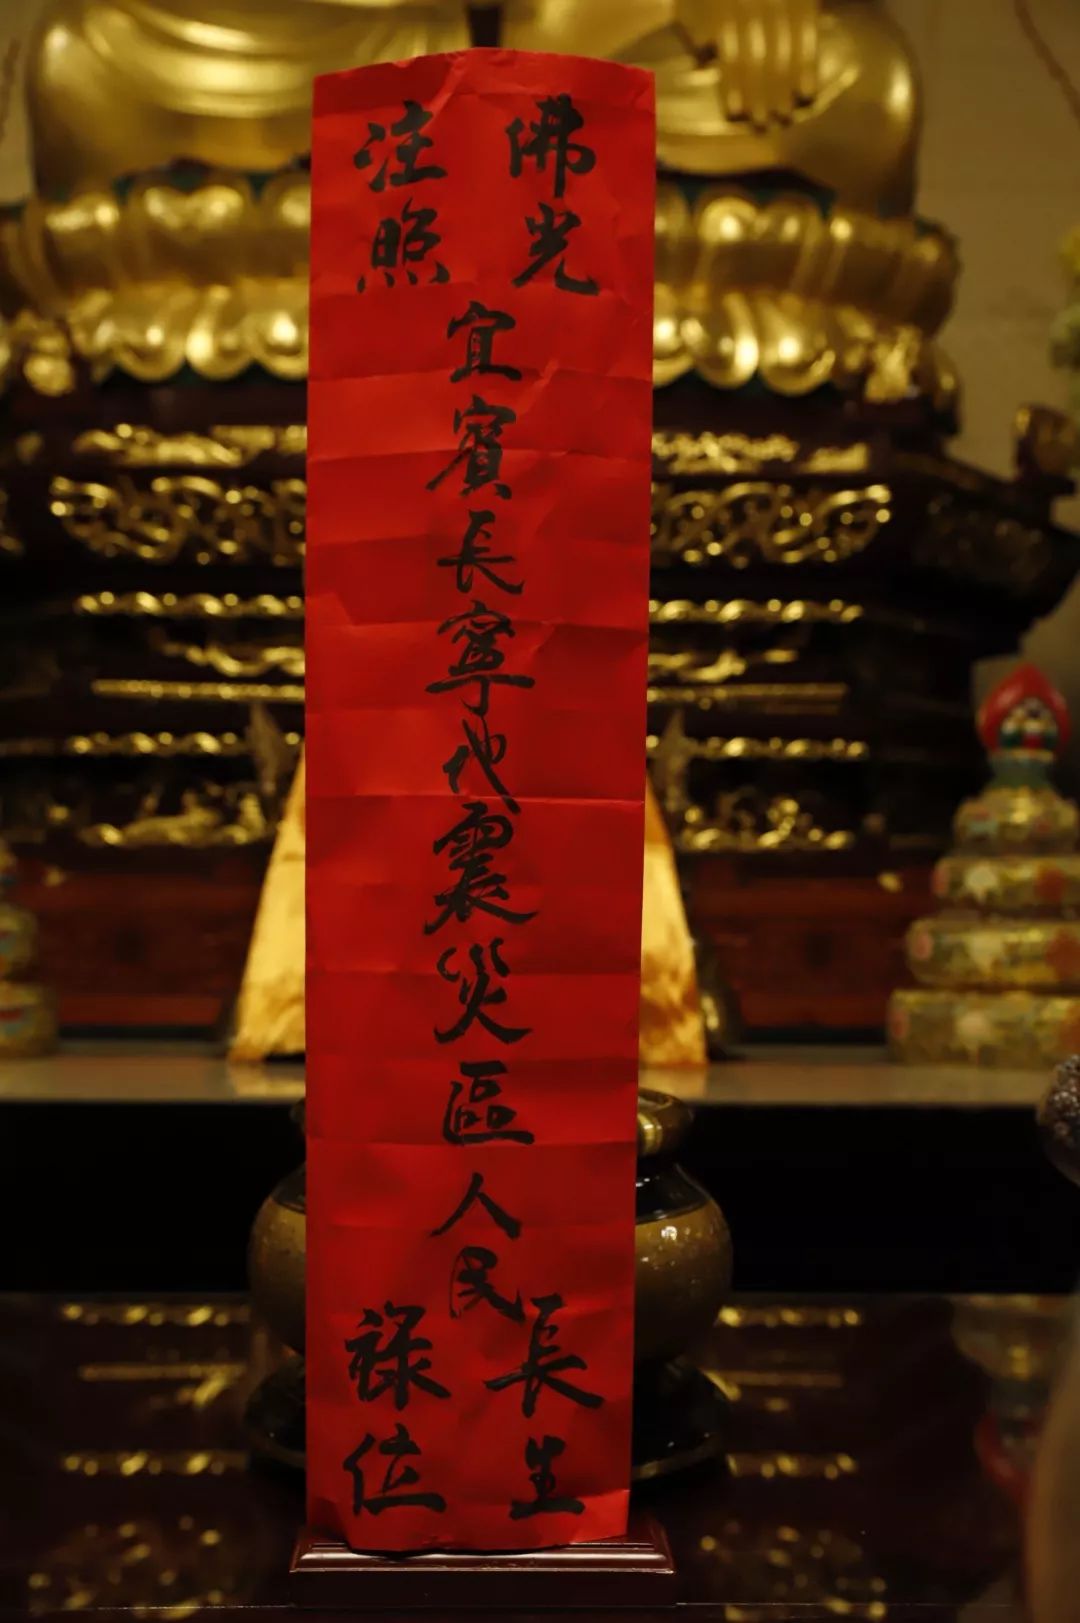 佛光
注照
宜賓長寧地震災區人民
長生
祿位